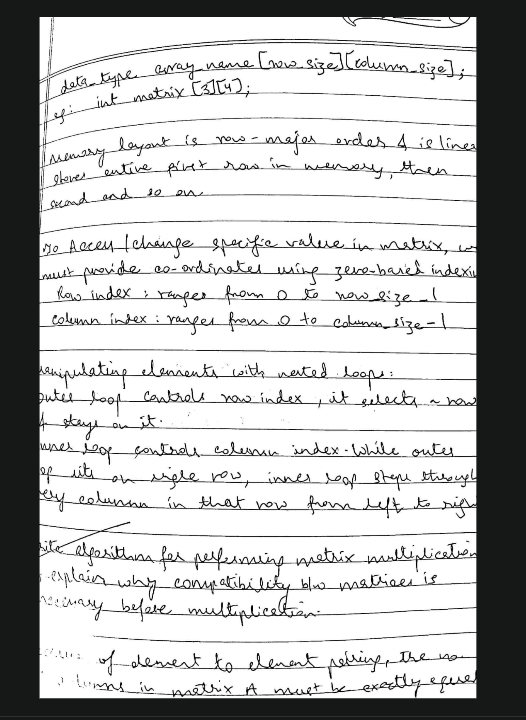 data_type array_name [row_size][column_size];
eg: int matrix [3][4];
memory layout is row-major order & is linea
stores entire first row in memory, then
second and so on
To Access/change specific value in matrix, w
must provide co-ordinates using zero-based indexin
Row index : ranges from 0 to row_size-1
column index : ranges from 0 to column_size-1
manipulating elements with nested loops:
outer loop controls row index, it selects a row
& stays on it.
inner loop controls column index. While outer
op sits on single row, inner loop steps through
ery column in that row from left to righ
rite algorithm for performing matrix multiplication
explain why compatibility b/w matrices is
necessary before multiplication.
of element to element pairing, the no
lumns in matrix A must be exactly equal